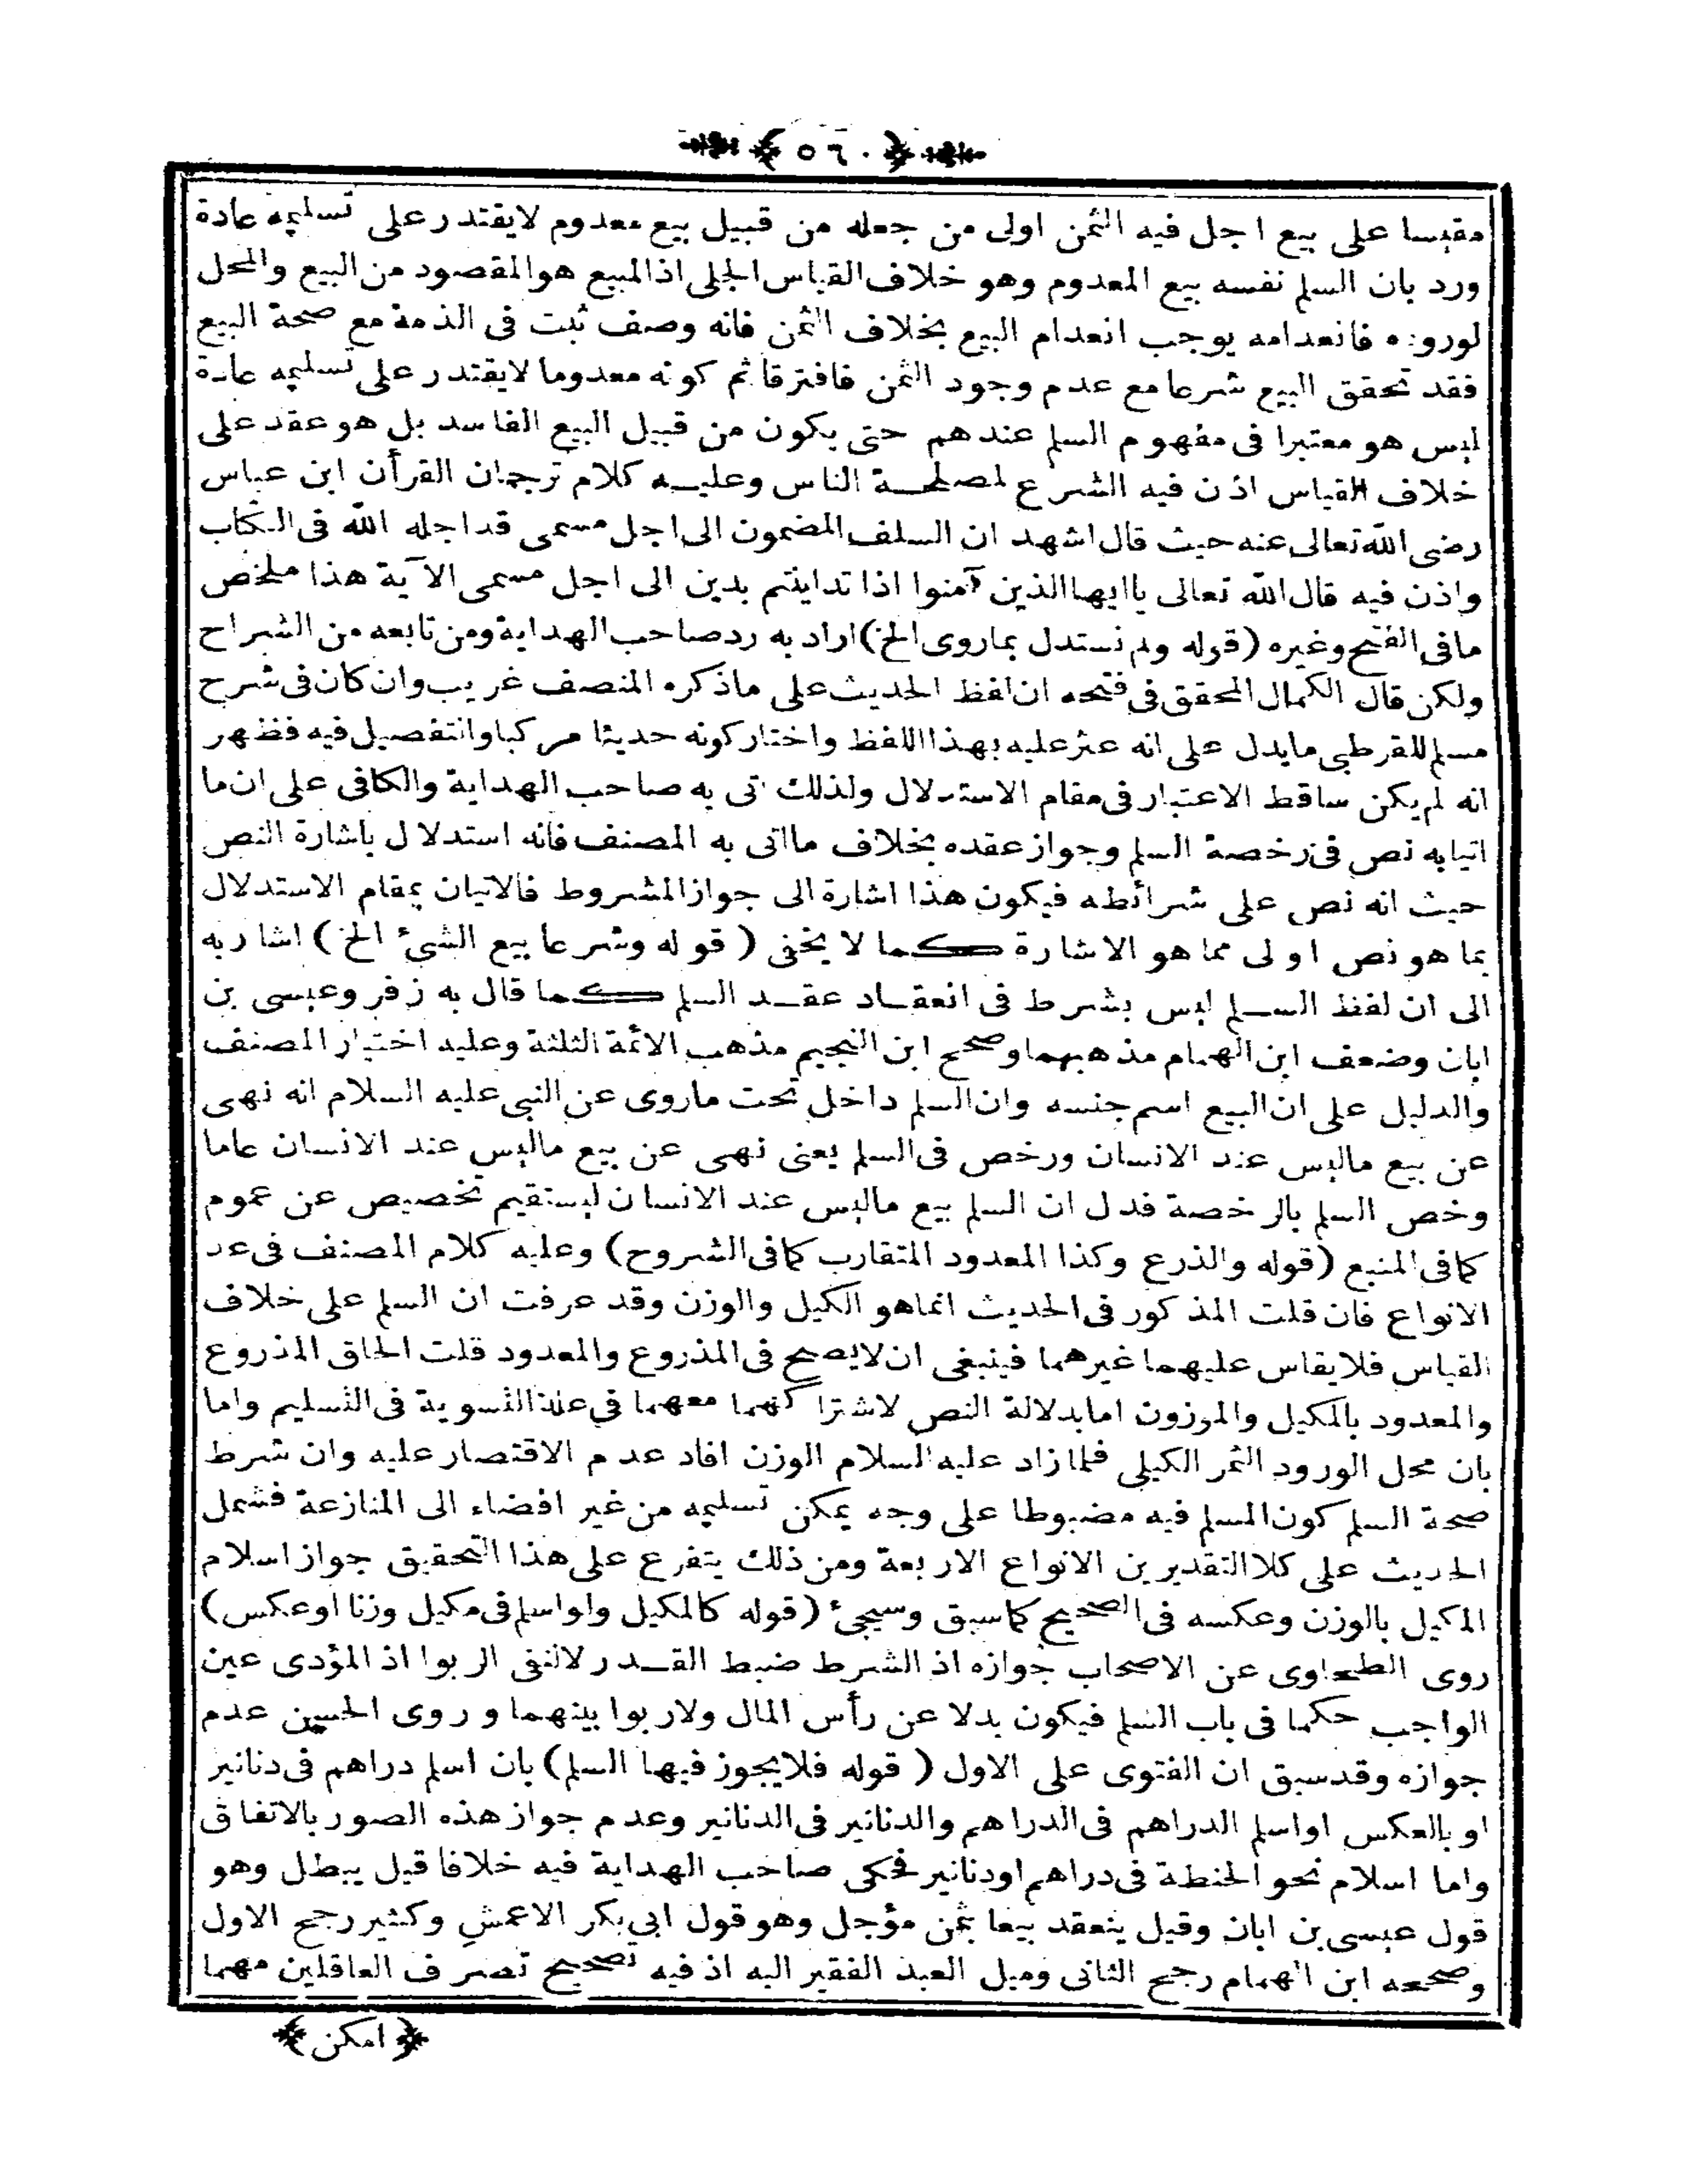 ﴿ ٥٦٠ ﴾
مقيسا على بيع اجل فيه الثمن اولى من جعله من قبيل بيع معدوم لايقتدر على تسليمه عادة
ورد بان السلم نفسه بيع المعدوم وهو خلاف القياس الجلى اذ المبيع هو المقصود من البيع والمحل
لوروده فانعدامه يوجب انعدام البيع بخلاف الثمن فانه وصف ثبت فى الذمة مع صحة البيع
فقد تحقق البيع شرعا مع عدم وجود الثمن فافترقا ثم كونه معدوما لايقتدر على تسليمه عادة
ليس هو معتبرا فى مفهوم السلم عندهم حتى يكون من قبيل البيع الفاسد بل هو عقد على
خلاف القياس اذن فيه الشرع لمصلحة الناس وعليه كلام ترجمان القرأن ابن عباس
رضى الله تعالى عنه حيث قال اشهد ان السلف المضمون الى اجل مسمى قد اجله الله فى الكتاب
واذن فيه قال الله تعالى ياايها الذين آمنوا اذا تداينتم بدين الى اجل مسمى الآية هذا ملخص
مافى الفتح وغيره (قوله ولم نستدل بماروى الخ) اراد به رد صاحب الهداية ومن تابعه من الشراح
ولكن قال الكمال المحقق فى فتحه ان لفظ الحديث على ماذكره المنصف غريب وان كان فى شرح
مسلم للقرطبى مايدل على انه عثر عليه بهذا اللفظ واختار كونه حديثا مركبا والتفصيل فيه فظهر
انه لم يكن ساقط الاعتبار فى مقام الاستدلال ولذلك اتى به صاحب الهداية والكافى على ان ما
اتيابه نص فى رخصة السلم وجواز عقده بخلاف مااتى به المصنف فانه استدلال باشارة النص
حيث انه نص على شرائطه فيكون هذا اشارة الى جواز المشروط فالاتيان بمقام الاستدلال
بما هو نص اولى مما هو الاشارة كما لا يخفى (قوله وشرعا بيع الشئ الخ) اشار به
الى ان لفظ السلم ليس بشرط فى انعقاد عقد السلم كما قال به زفر وعيسى بن
ابان وضعف ابن الهمام مذهبهما وصحح ابن النجيم مذهب الائمة الثلثة وعليه اختيار المصنف
والدليل على ان البيع اسم جنسه وان السلم داخل تحت ماروى عن النبى عليه السلام انه نهى
عن بيع ماليس عند الانسان ورخص فى السلم يعنى نهى عن بيع ماليس عند الانسان عاما
وخص السلم بالرخصة فدل ان السلم بيع ماليس عند الانسان ليستقيم تخصيص عن عموم
كمافى المنبع (قوله والذرع وكذا المعدود المتقارب كمافى الشروح) وعليه كلام المصنف فى عد
الانواع فان قلت المذكور فى الحديث انماهو الكيل والوزن وقد عرفت ان السلم على خلاف
القياس فلايقاس عليهما غيرهما فينبغى ان لايصح فى المذروع والمعدود قلت الحاق المذروع
والمعدود بالمكيل والموزون اما بدلالة النص لاشتراكهما معهما فى علة التسوية فى التسليم واما
بان محل الورود الثمر الكيلى فلما زاد عليه السلام الوزن افاد عدم الاقتصار عليه وان شرط
صحة السلم كون المسلم فيه مضبوطا على وجه يمكن تسليمه من غير افضاء الى المنازعة فشمل
الحديث على كلا التقديرين الانواع الاربعة ومن ذلك يتفرع على هذا التحقيق جواز اسلام
المكيل بالوزن وعكسه فى الصحيح كماسبق وسيجئ (قوله كالمكيل ولواسلم فى مكيل وزنا اوعكس)
روى الطحاوى عن الاصحاب جوازه اذ الشرط ضبط القدر لالنفى الربوا اذ المؤدى عين
الواجب حكما فى باب السلم فيكون بدلا عن رأس المال ولاربوا بينهما وروى الحسن عدم
جوازه وقد سبق ان الفتوى على الاول (قوله فلايجوز فيها السلم) بان اسلم دراهم فى دنانير
او بالعكس اواسلم الدراهم فى الدراهم والدنانير فى الدنانير وعدم جواز هذه الصور بالاتفاق
واما اسلام نحو الحنطة فى دراهم اودنانير فحكى صاحب الهداية فيه خلافا قيل يبطل وهو
قول عيسى بن ابان وقيل ينعقد بيعا بثمن مؤجل وهو قول ابى بكر الاعمش وكثير رجح الاول
وصححه ابن الهمام رجح الثانى وميل العبد الفقير اليه اذ فيه تصحيح تصرف العاقلين مهما
﴿ امكن ﴾